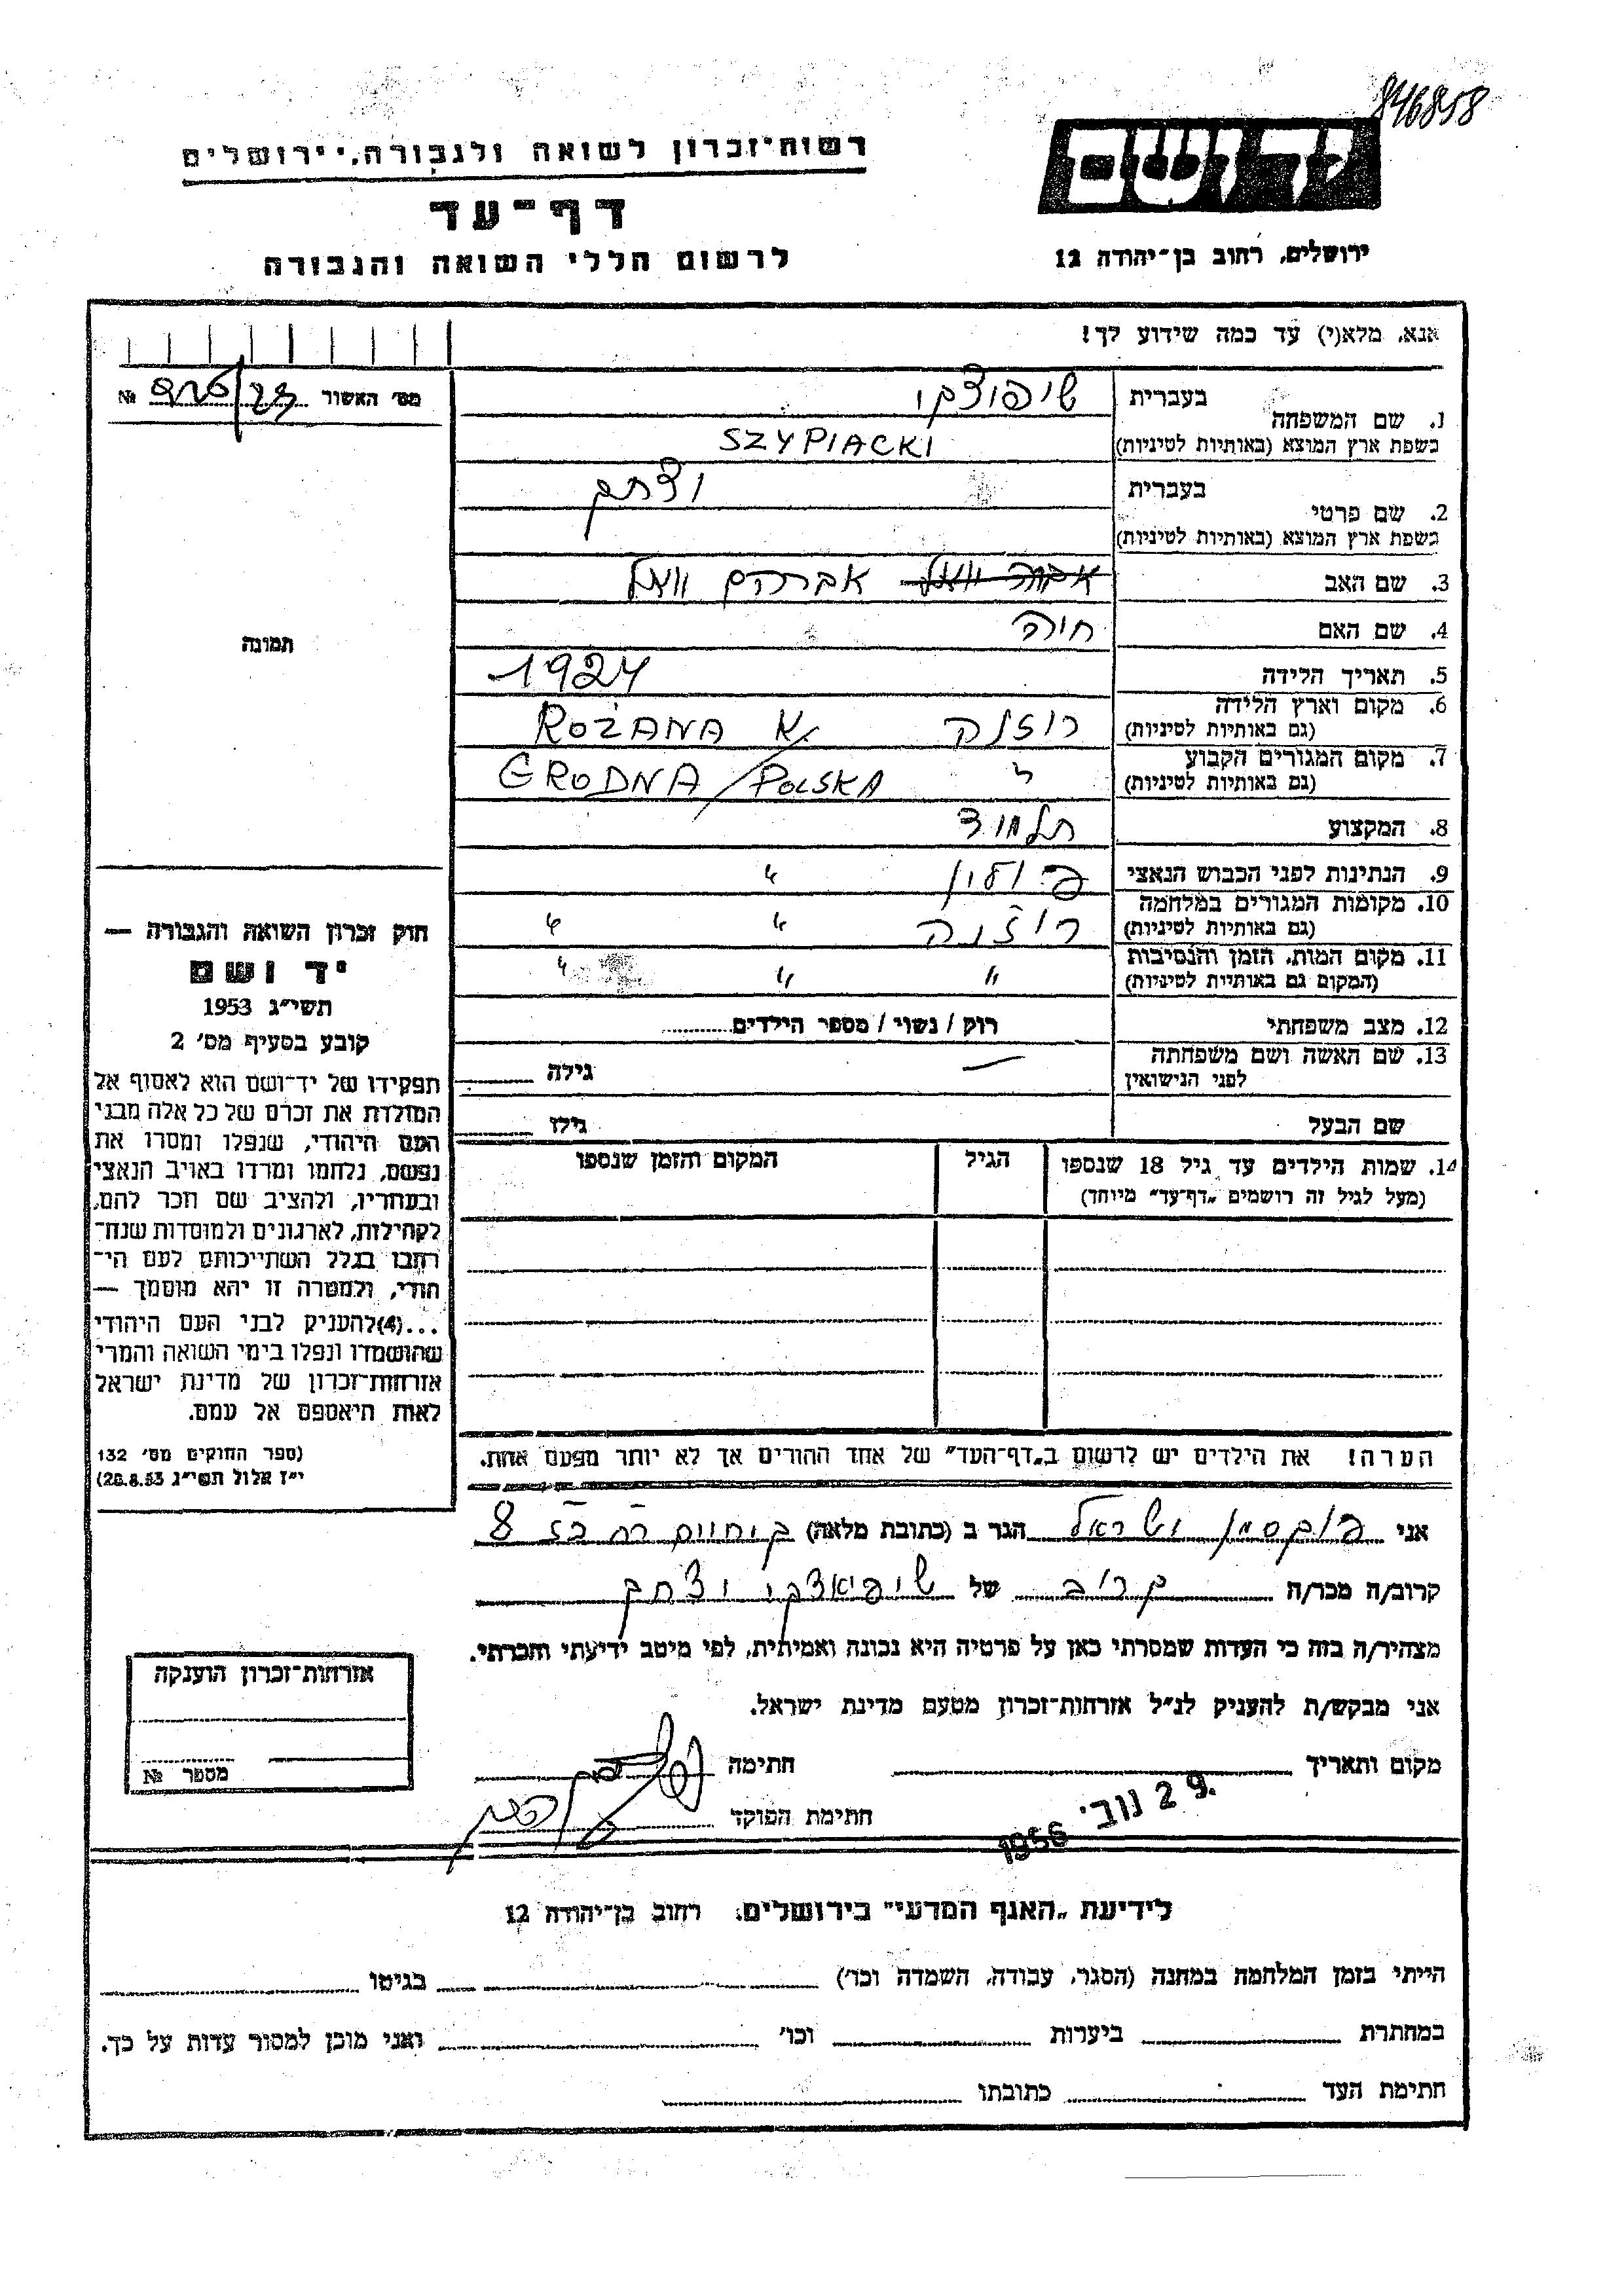 846858
רשות־זכרון לשואה ולגבורה, ירושלים
דף־עד
לרשום חללי השואה והגבורה
יד ושם
ירושלים, רחוב בן־יהודה 12
אנא, מלא(י) עד כמה שידוע לך!
מס׳ האשור №
1. שם המשפחה
בעברית
בשפת ארץ המוצא (באותיות לטיניות)
SZYPIACKI
2. שם פרטי
בעברית יצחק
בשפת ארץ המוצא (באותיות לטיניות)
3. שם האב אברהם
4. שם האם חיה
5. תאריך הלידה 1924
6. מקום וארץ הלידה רוז׳נה ROŻANA K.
(גם באותיות לטיניות)
7. מקום המגורים הקבוע GRODNA / POLSKA
(גם באותיות לטיניות)
8. המקצוע תלמיד
9. הנתינות לפני הכבוש הנאצי פולין "
10. מקומות המגורים במלחמה רוז׳נה " "
(גם באותיות לטיניות)
11. מקום המות, הזמן והנסיבות " " "
(המקום גם באותיות לטיניות)
12. מצב משפחתי רוק / נשוי / מספר הילדים
13. שם האשה ושם משפחתה
לפני הנישואין
גילה
שם הבעל גילו
14. שמות הילדים עד גיל 18 שנספו
(מעל לגיל זה רושמים „דף־עד״ מיוחד)
הגיל
המקום והזמן שנספו
הערה! את הילדים יש לרשום ב„דף־העד״ של אחד ההורים אך לא יותר מפעם אחת.
תמונה
חוק זכרון השואה והגבורה —
יד ושם
תשי״ג 1953
קובע בסעיף מס׳ 2
תפקידו של יד־ושם הוא לאסוף אל
המולדת את זכרם של כל אלה מבני
העם היהודי, שנפלו ומסרו את
נפשם, נלחמו ומרדו באויב הנאצי
ובעוזריו, ולהציב שם וזכר להם,
לקהילות, לארגונים ולמוסדות שנח־
רבו בגלל השתייכותם לעם הי־
הודי, ולמטרה זו יהא מוסמך —
...(4)להעניק לבני העם היהודי
שהושמדו ונפלו בימי השואה והמרי
אזרחות־זכרון של מדינת ישראל
לאות היאספם אל עמם.
(ספר החוקים מס׳ 132
י״ז אלול תשי״ג 28.8.53)
אני ישראל הגר ב (כתובת מלאה) 8
קרוב/ה מכר/ה קרוב של שיפיאצקי יצחק
מצהיר/ה בזה כי העדות שמסרתי כאן על פרטיה היא נכונה ואמיתית, לפי מיטב ידיעתי והכרתי.
אני מבקש/ת להעניק לנ״ל אזרחות־זכרון מטעם מדינת ישראל.
מקום ותאריך חתימה
29 נוב׳ 1956
חתימת הפוקד
אזרחות־זכרון הוענקה
מספר №
לידיעת „האגף המדעי״ בירושלים, רחוב בן־יהודה 12
הייתי בזמן המלחמה במחנה (הסגר, עבודה, השמדה וכו׳) בגיטו
במחתרת ביערות וכו׳ ואני מוכן למסור עדות על כך.
חתימת העד כתובתו